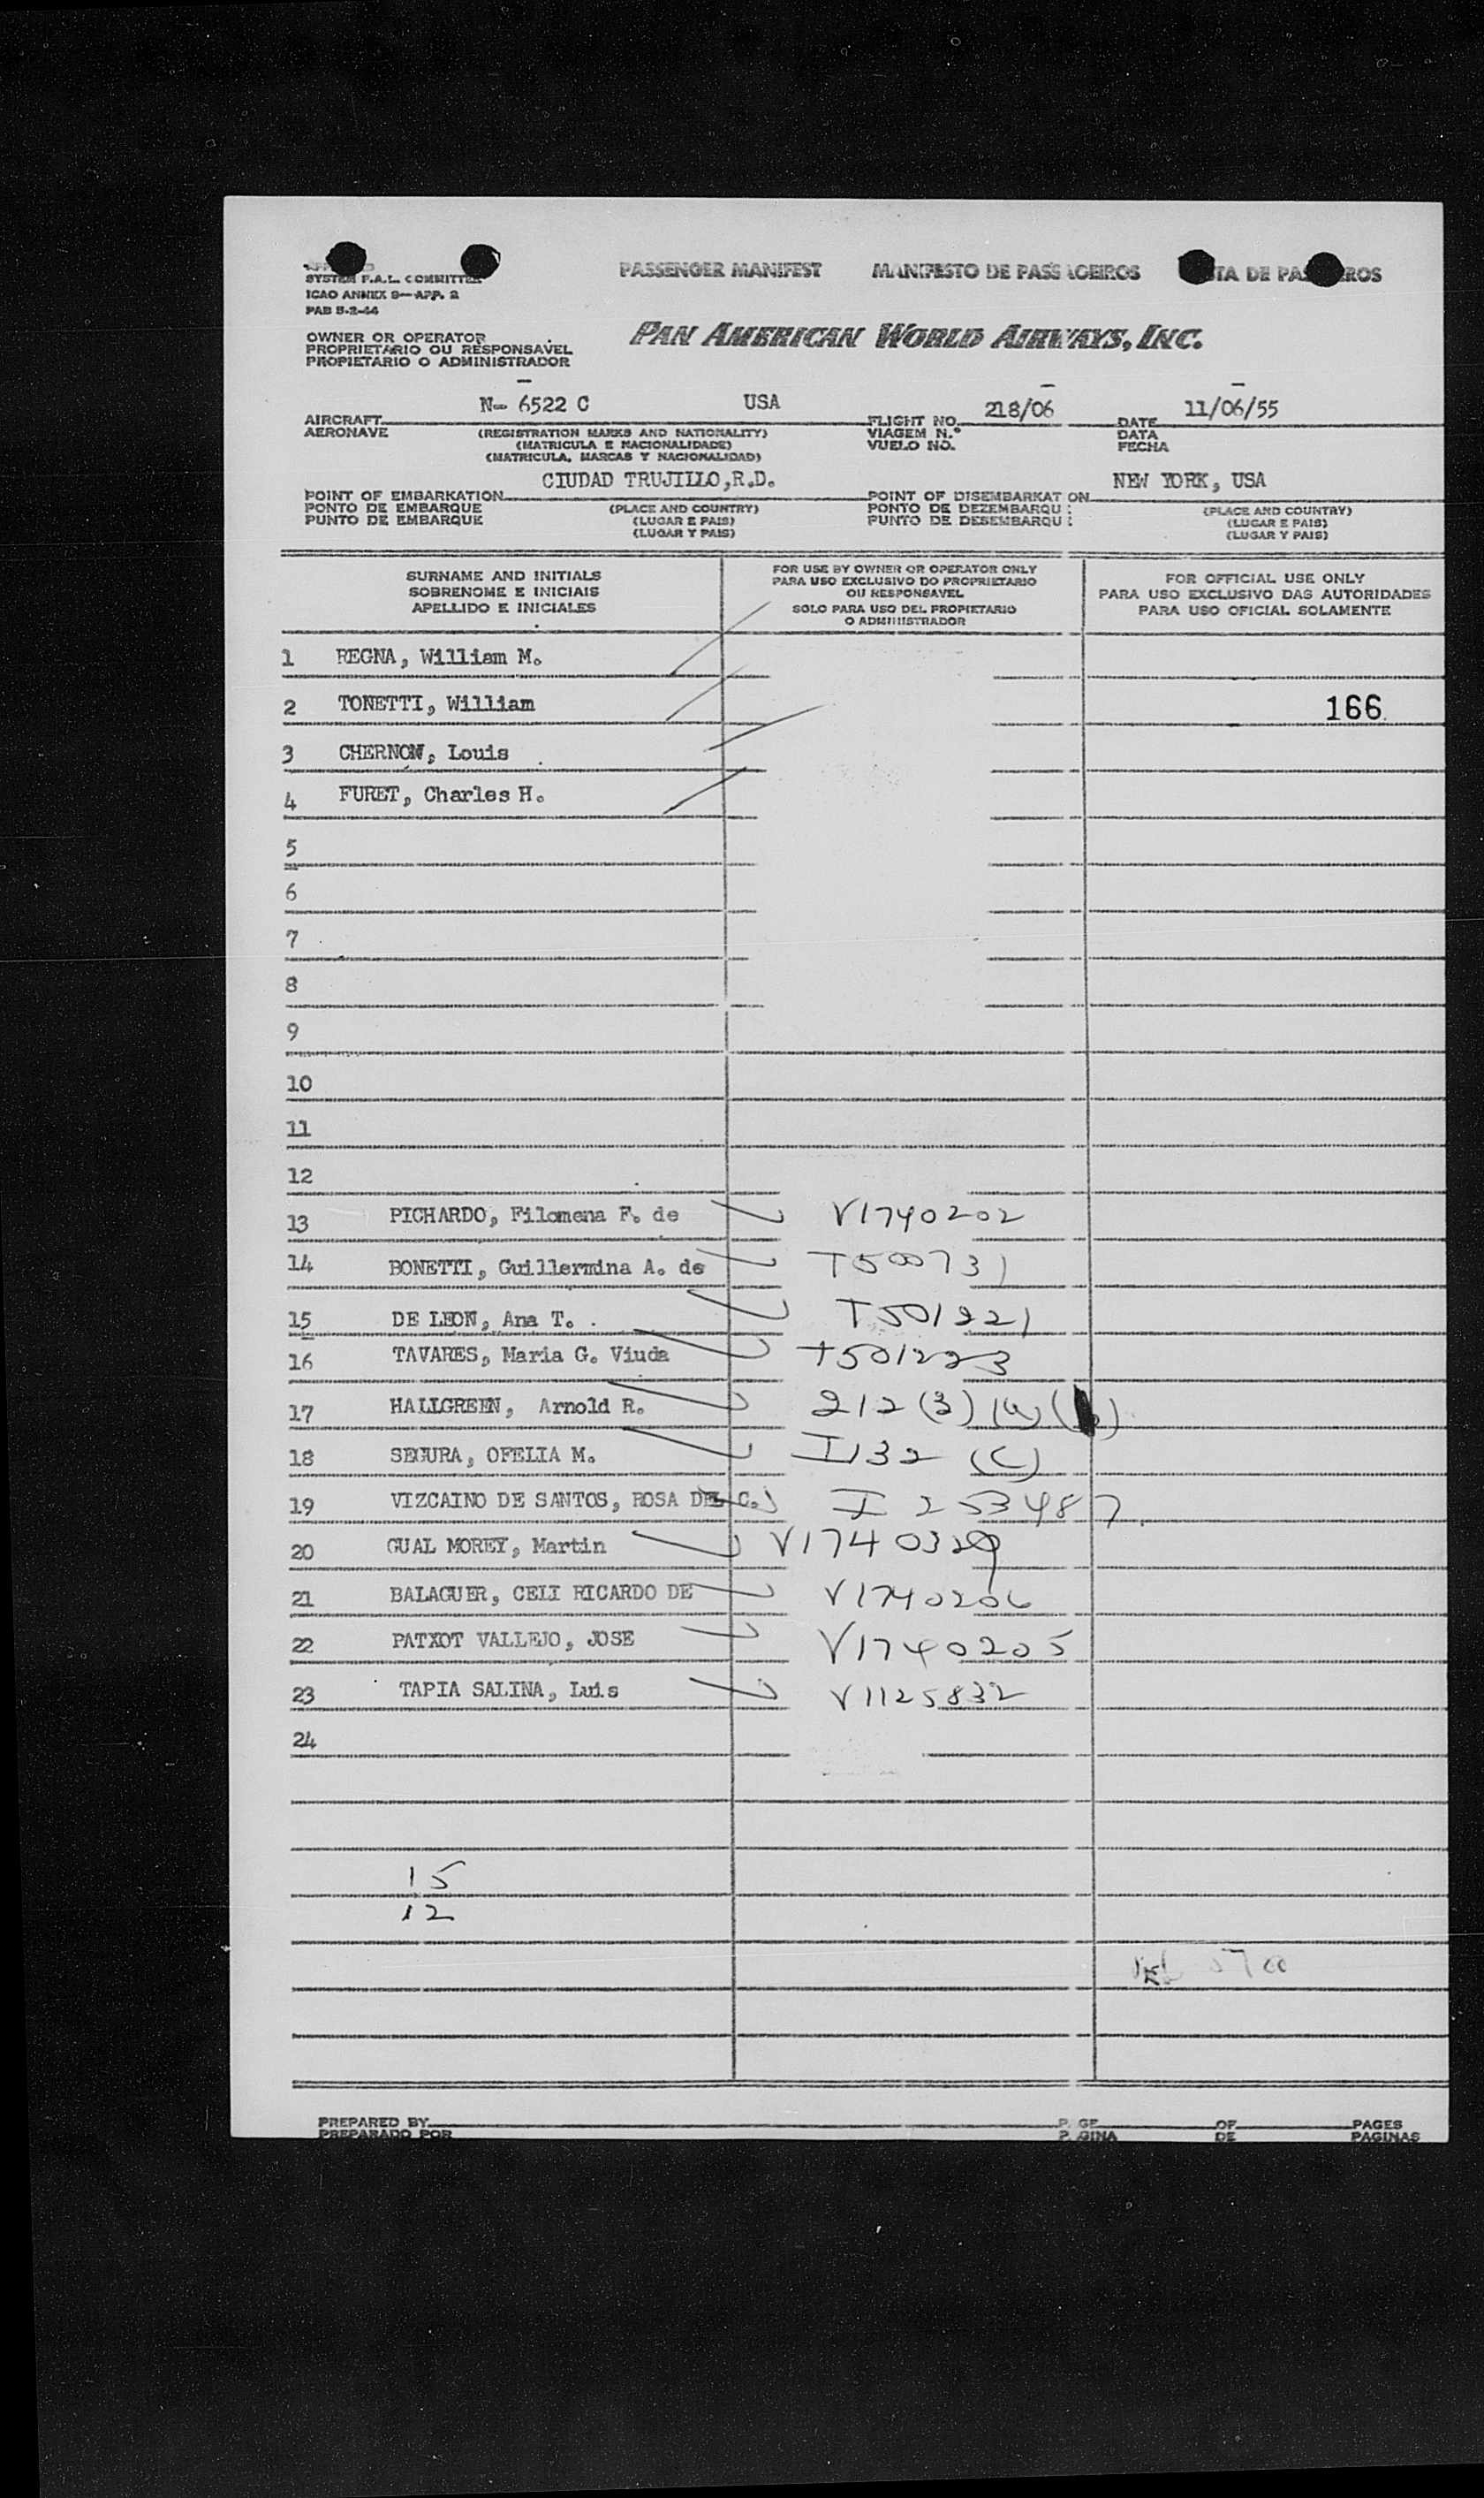 PASSENGER MANIFEST MANIFESTO DE PASSAGEIROS DE
SYSTEM F.A.L. COMMITTEE
ICAO ANNEX 9—APP. 2
PAB 5-2-44
OWNER OR OPERATOR
PROPRIETARIO OU RESPONSAVEL
PROPIETARIO O ADMINISTRADOR
PAN AMERICAN WORLD AIRWAYS, INC.
AIRCRAFT N- 6522 C USA FLIGHT NO. 218/06 DATE 11/06/55
AERONAVE (REGISTRATION MARKS AND NATIONALITY) VIAGEM N.º DATA
(MATRICULA E NACIONALIDADE) VUELO NO. FECHA
(MATRICULA, MARCAS Y NACIONALIDAD)
POINT OF EMBARKATION CIUDAD TRUJILLO,R.D. POINT OF DISEMBARKAT ON NEW YORK, USA
PONTO DE EMBARQUE (PLACE AND COUNTRY) PONTO DE DEZEMBARQU (PLACE AND COUNTRY)
PUNTO DE EMBARQUE (LUGAR E PAIS) PUNTO DE DESEMBARQU (LUGAR E PAIS)
(LUGAR Y PAIS) (LUGAR Y PAIS)
SURNAME AND INITIALS
SOBRENOME E INICIAIS
APELLIDO E INICIALES
FOR USE BY OWNER OR OPERATOR ONLY
PARA USO EXCLUSIVO DO PROPRIETARIO
OU RESPONSAVEL
SOLO PARA USO DEL PROPIETARIO
O ADMINISTRADOR
FOR OFFICIAL USE ONLY
PARA USO EXCLUSIVO DAS AUTORIDADES
PARA USO OFICIAL SOLAMENTE
1 REGNA, William M.
2 TONETTI, William 166
3 CHERNON, Louis
4 FURET, Charles H.
5
6
7
8
9
10
11
12
13 PICHARDO, Filomena F. de V1740202
14 BONETTI, Guillermina A. de T500731
15 DE LEON, Ana T. T501221
16 TAVARES, Maria G. Viuda T501223
17 HALLGREEN, Arnold R. 212 (3) (a)
18 SEGURA, OFELIA M. I132 (C)
19 VIZCAINO DE SANTOS, ROSA DEL C. I 253487
20 GUAL MOREY, Martin V1740329
21 BALAGUER, CELI RICARDO DE V1740206
22 PATXOT VALLEJO, JOSE V1740205
23 TAPIA SALINA, Luis V1125832
24
15
12
PREPARED BY OF PAGES
PREPARADO POR DE PAGINAS